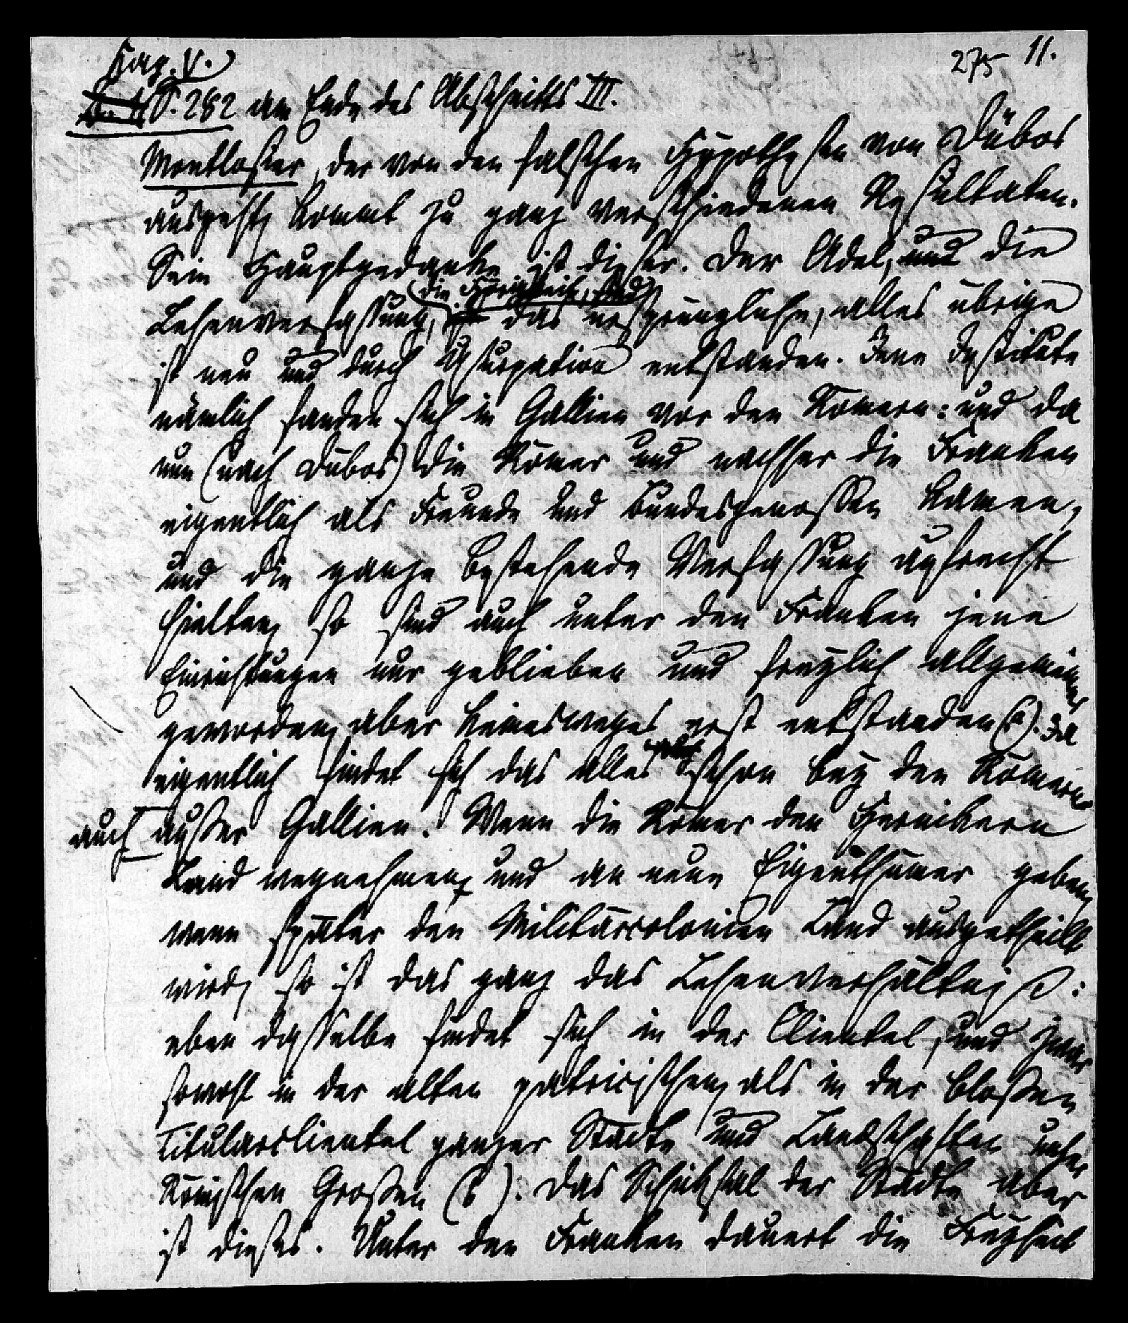 Kap. V.
275 11.
S. 282 am Ende des Abschnitts III.
Montlosier, der von den falschen Hypothesen von Dübos
ausgeht, kommt zu ganz verschiedenen Resultaten.
Sein Hauptgedanke ist dieser. Der Adel, und die
(die Hörigkeit, sind)
Lehenverfassung, das ursprüngliche, alles übrige
ist neu und durch Usurpation entstanden. Jene Institute
nämlich fanden sich in Gallien vor den Römern: und da
nun (nach Dübos) die Römer und nachher die Franken
eigentlich als Freunde und Bundesgenossen kamen,
und die ganze bestehende Verfassung aufrecht
hielten, so sind auch unter den Franken jene
Einrichtungen nur geblieben und freylich allgemeiner
geworden, aber keinesweges erst entstanden (a). Ja
eigentlich findet sich das alles schon bey den Römern
auch außer Gallien. Wenn die Römer den Hernikern
Land wegnehmen, und an neue Eigenthümer geben,
wenn später den Militärcolonien Land ausgetheilt
wird, so ist das ganz das Lehenverhältniß:
eben dasselbe findet sich in der Clientel, und zwar
sowohl in der alten patricischen, als in der bloßen
Titularclientel ganzer Städte und Landschaften unter
Römischen Großen (b). Das Schicksal der Städte aber
ist dieses. Unter den Franken dauert die Freyheit